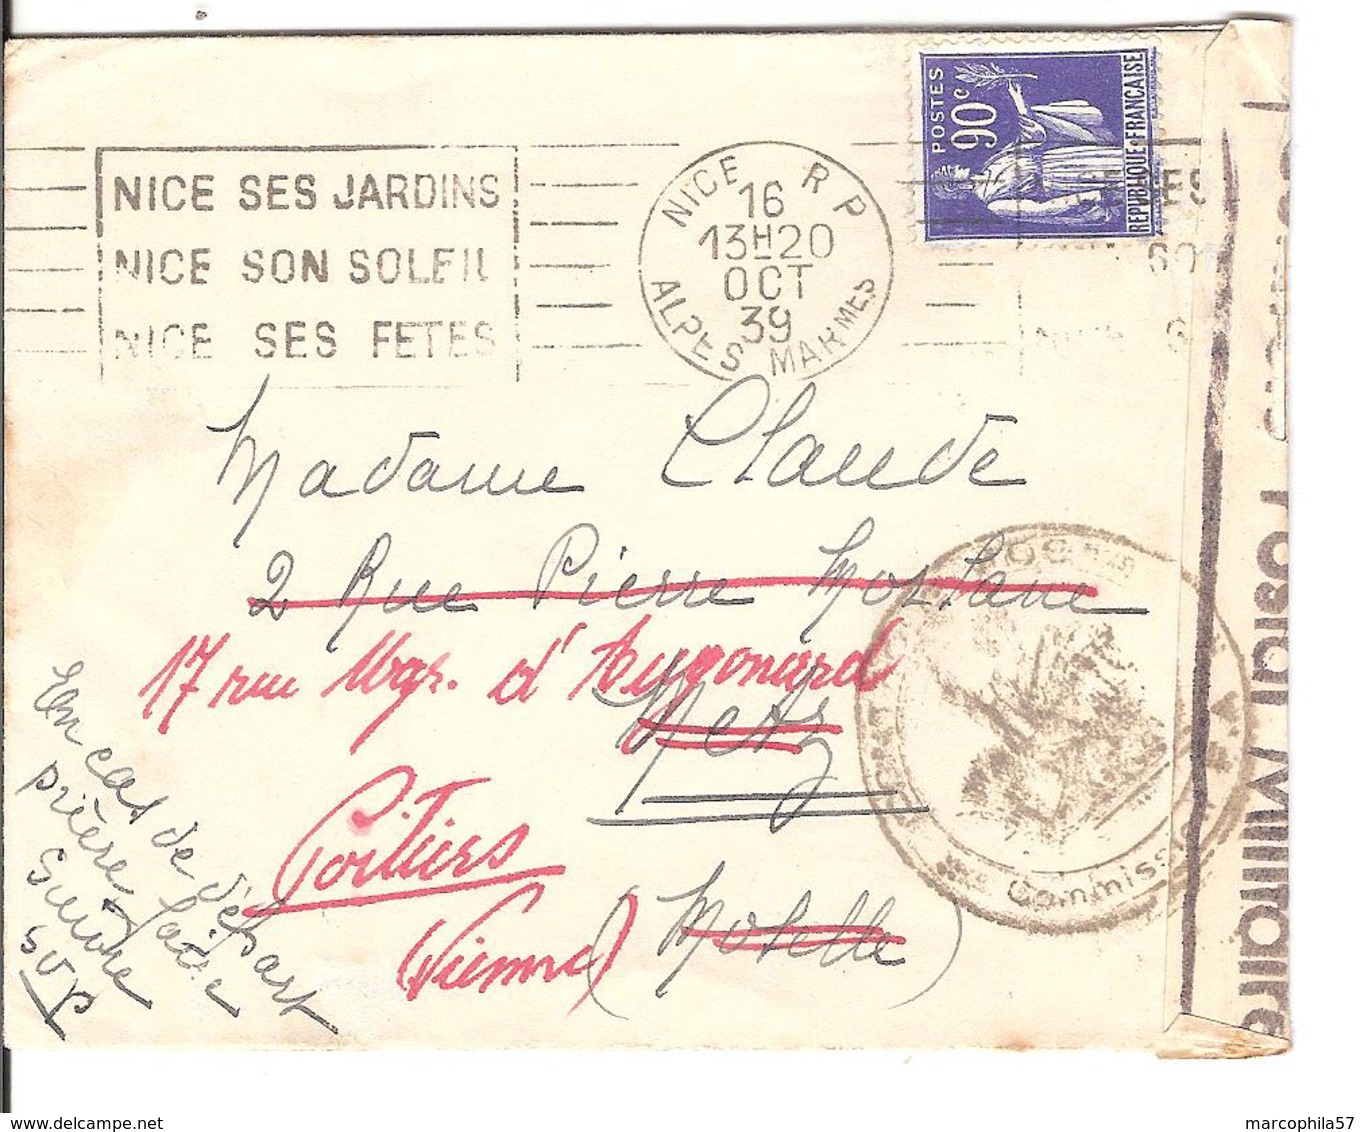 NICE SES JARDINS
NICE SON SOLEIL
NICE SES FETES
NICE R P
16
13H20
OCT
39
ALPES MARMES
POSTES
90c
REPUBLIQUE FRANÇAISE
Madame Claude
2 Rue Pierre
17 rue Mgr. d'Augouard
Metz
Poitiers
(Vienne)
(Moselle)
En cas de départ
prière faire
suivre
SVP
Commission
Postal Militaire
marcophila57